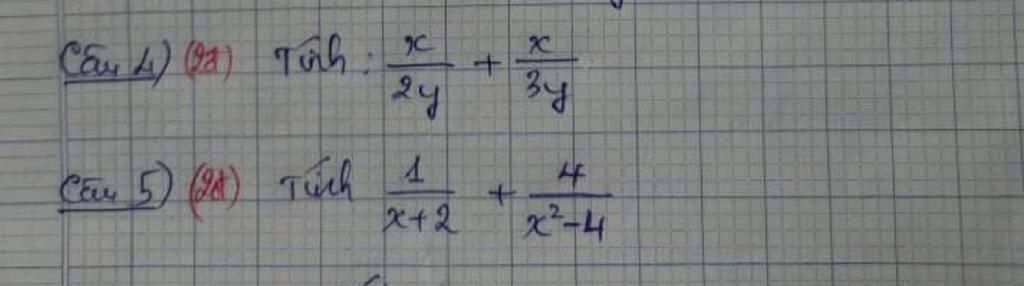 Câu 4) (2đ) Tính : x/2y + x/3y
Câu 5) (2đ) Tính 1/(x+2) + 4/(x²-4)